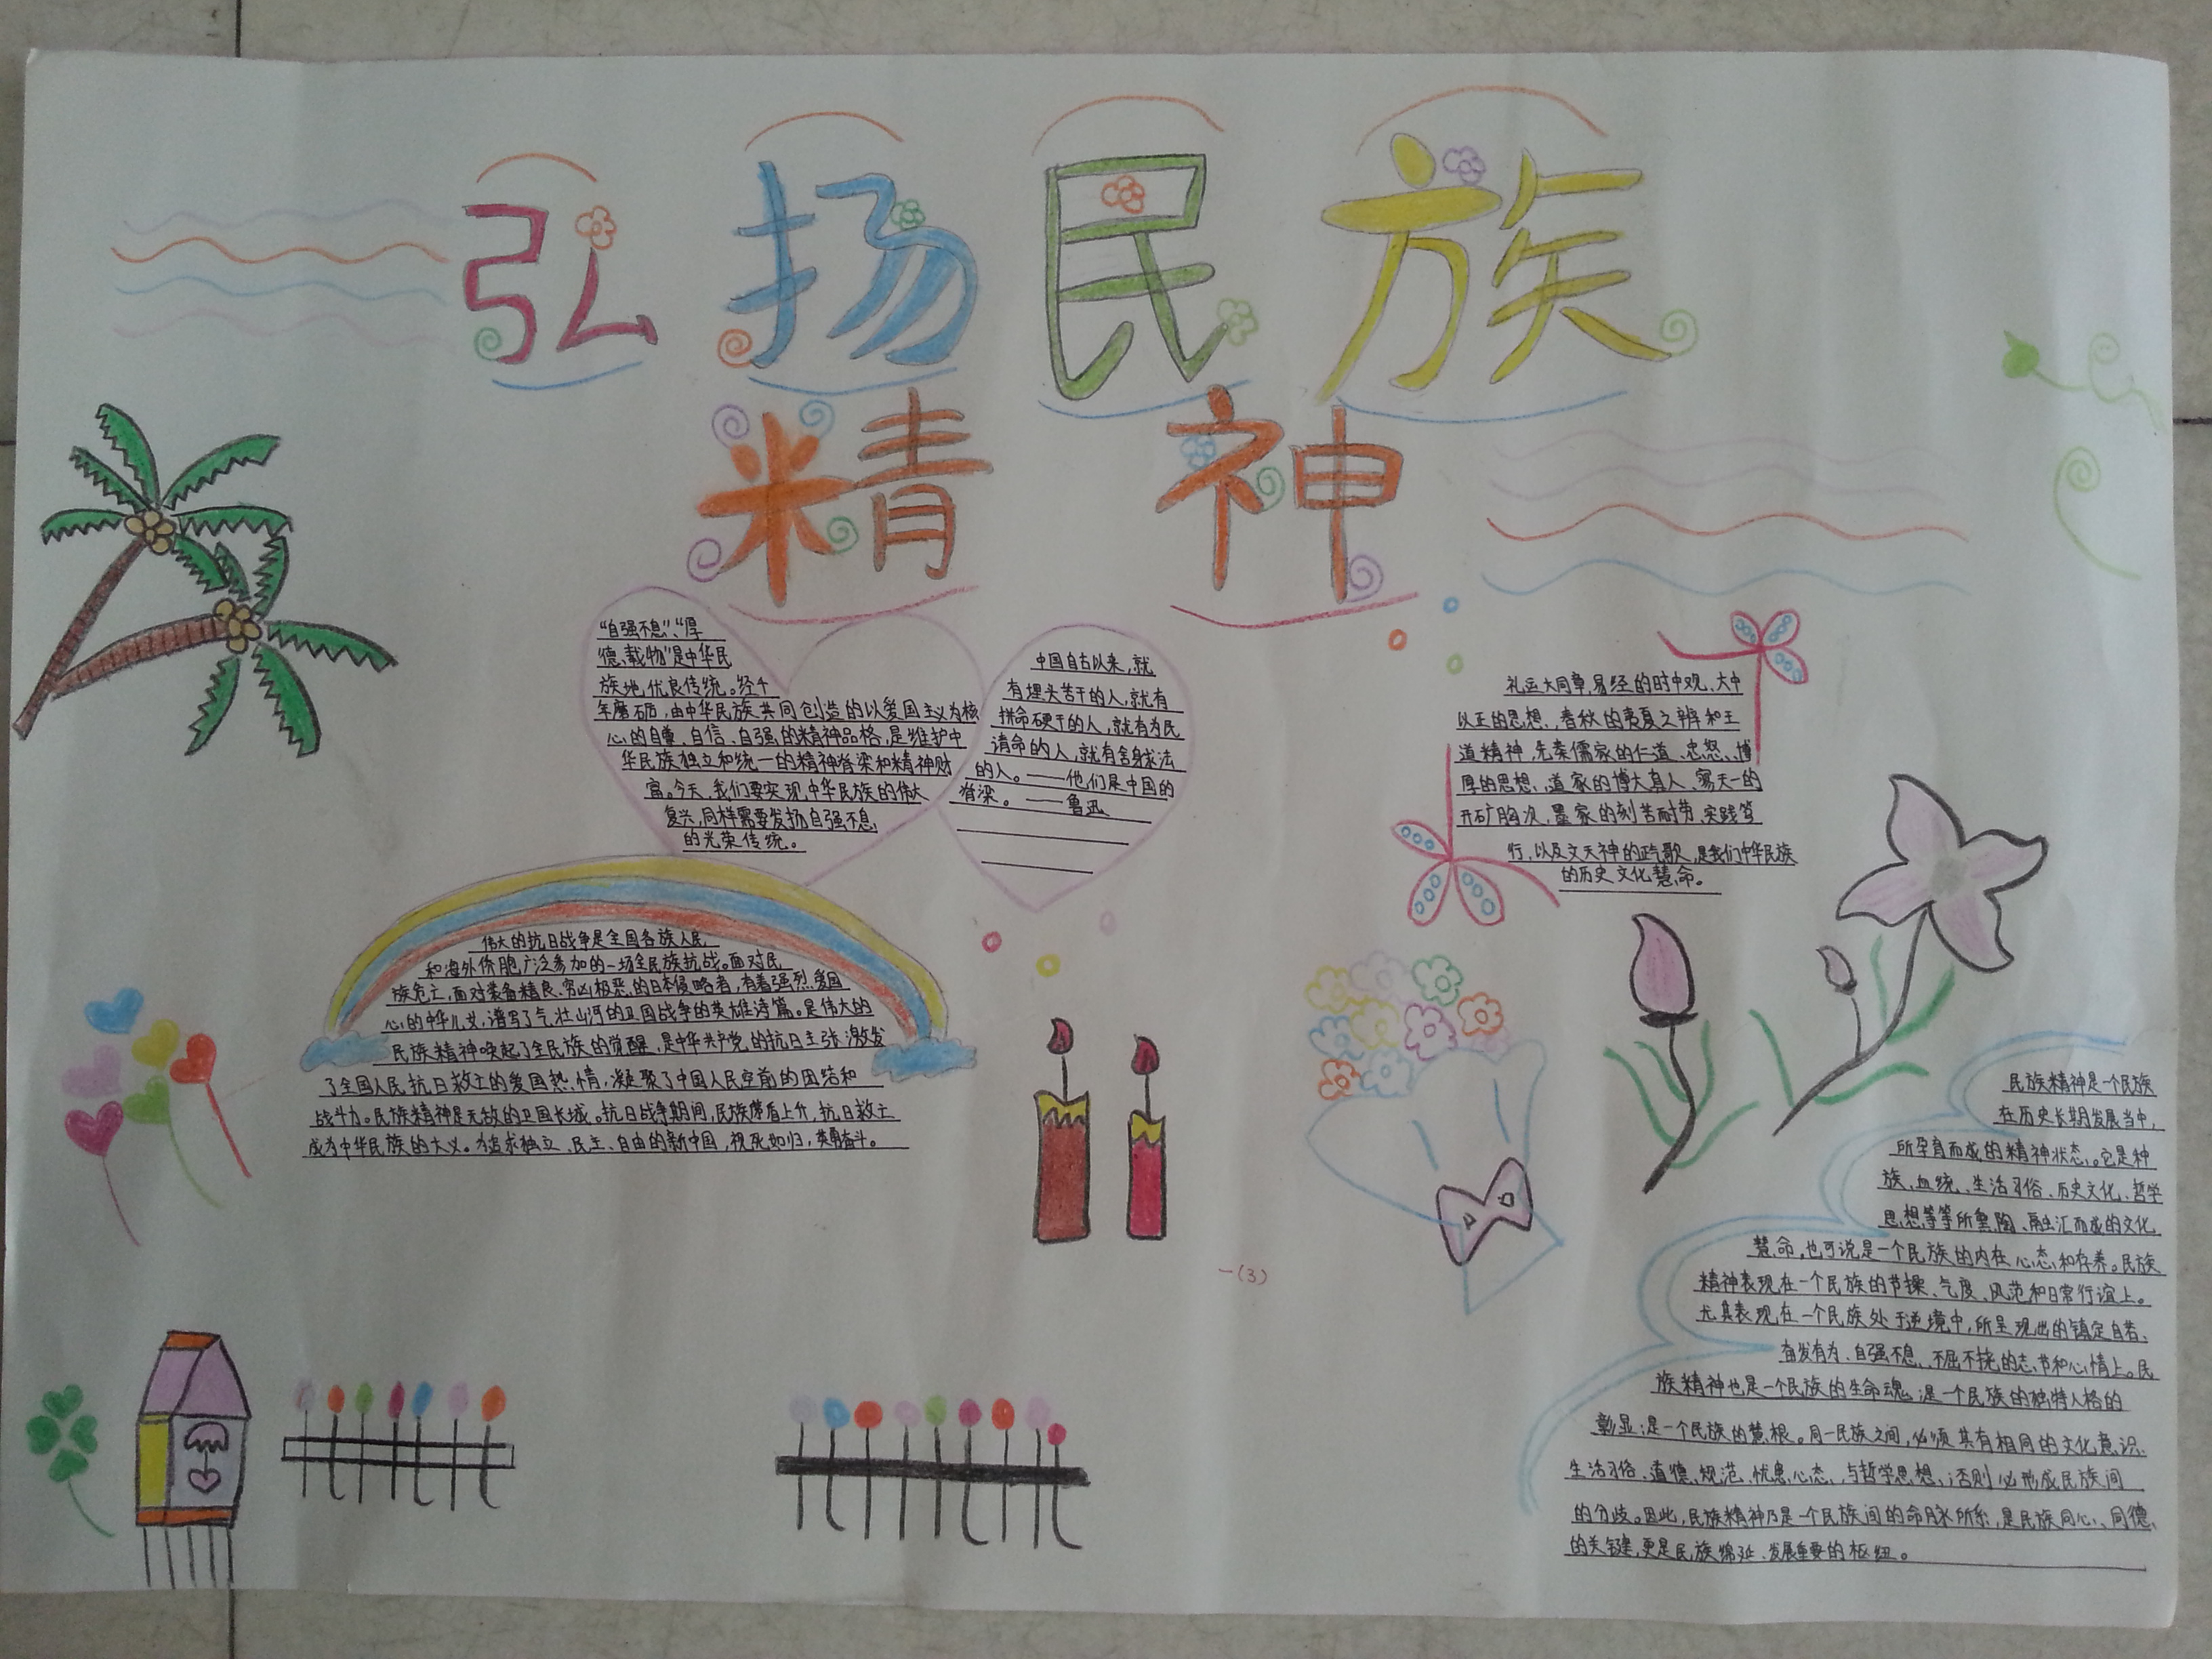 弘扬民族
精神
“自强不息”、“厚
德、载物”是中华民
族地优良传统。经千
年磨砺，由中华民族共同创造的以爱国主义为核
心的自尊、自信、自强的精神品格，是维护中
华民族独立和统一的精神脊梁和精神财
富。今天，我们要实现中华民族的伟大
复兴，同样需要发扬自强不息
的光荣传统。
中国自古以来，就
有埋头苦干的人，就有
拼命硬干的人，就有为民
请命的人，就有舍身求法
的人。——他们是中国的
脊梁。——鲁迅
礼运大同章，易经的时中观、大中
以正的思想、春秋的夷夏之辨和王
道精神，先秦儒家的仁道、忠恕、博
厚的思想、道家的博大真人、寥天一的
开矿胸次，墨家的刻苦耐劳、实践笃
行，以及文天神的正气歌，是我们中华民族
的历史文化慧命。
伟大的抗日战争是全国各族人民
和海外侨胞广泛参加的一场全民族抗战。面对民
族危亡，面对装备精良、穷凶极恶的日本侵略者，有着强烈爱国
心的中华儿女，谱写了气壮山河的卫国战争的英雄诗篇。是伟大的
民族精神唤起了全民族的觉醒，是中华共产党的抗日主张，激发
了全国人民抗日救亡的爱国热情，凝聚了中国人民空前的团结和
战斗力。民族精神是无敌的卫国长城。抗日战争期间，民族矛盾上升，抗日救亡
成为中华民族的大义。为追求独立、民主、自由的新中国，视死如归，英勇奋斗。
一(3)
民族精神是一个民族
在历史长期发展当中，
所孕育而成的精神状态。它是种
族、血统、生活习俗、历史文化、哲学
思想等等所熏陶、融汇而成的文化
慧命，也可说是一个民族的内在心态和存养。民族
精神表现在一个民族的节操、气度、风范和日常行谊上。
尤其表现在一个民族处于逆境中，所呈现出的镇定自若、
奋发有为、自强不息、不屈不挠的志节和心情上。民
族精神也是一个民族的生命魂，是一个民族的独特人格的
彰显；是一个民族的慧根。同一民族之间，必须具有相同的文化意识、
生活习俗、道德、规范、忧患心态、与哲学思想、否则必形成民族间
的分歧。因此，民族精神乃是一个民族间的命脉所系，是民族同心、同德、
的关键，更是民族绵延、发展重要的枢纽。